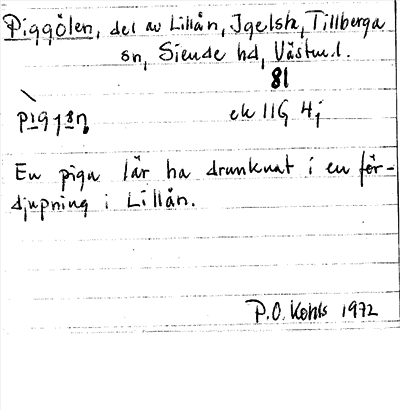 Piggölen, del av Lillån, Igelsta, Tillberga
sn, Siende hd, Västm.l.
81
ek 11G 4j
En piga lär ha drunknat i en för-
djupning i Lillån.
P.O. Kohls 1972